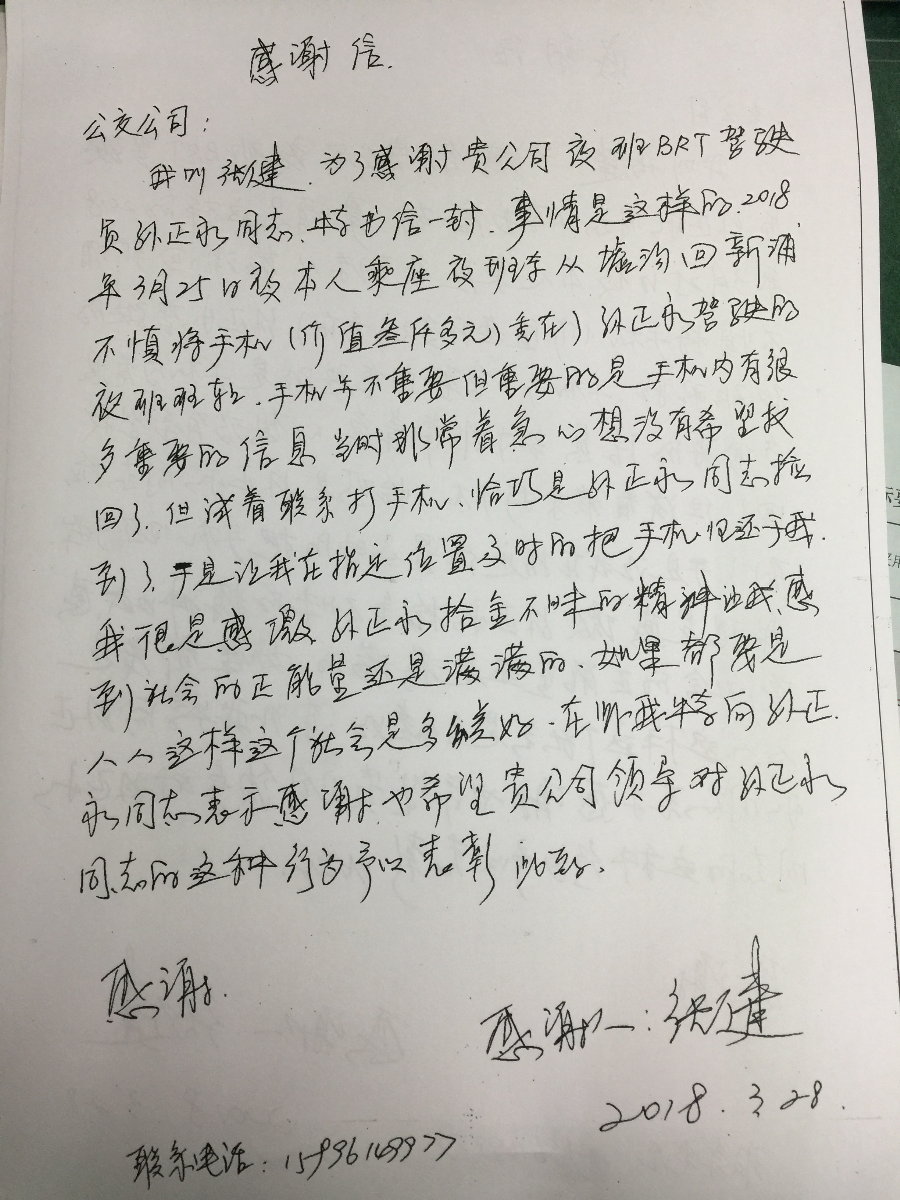 感谢信.
公交公司：
我叫张建.为了感谢贵公司夜班BRT驾驶
员孙正永同志.特书信一封.事情是这样的.2018
年3月25日夜本人乘座夜班车从墟沟回新浦
不慎将手机(价值叁仟多元)丢在了孙正永驾驶的
夜班班车.手机并不重要但重要的是手机内有很
多重要的信息当时非常着急心想没有希望找
回了.但试着联系打手机、恰巧是孙正永同志捡
到了.于是让我在指定位置及时的把手机归还于我.
我很是感激孙正永拾金不昧的精神让我感
到社会的正能量还是满满的.如果都要是
人人这样这个社会是多么美好.在此我特向孙正
永同志表示感谢.也希望贵公司领导对孙正永
同志的这种行为予以表彰此致.
感谢.
感谢人：张建
2018.3.28.
联系电话：15996149977